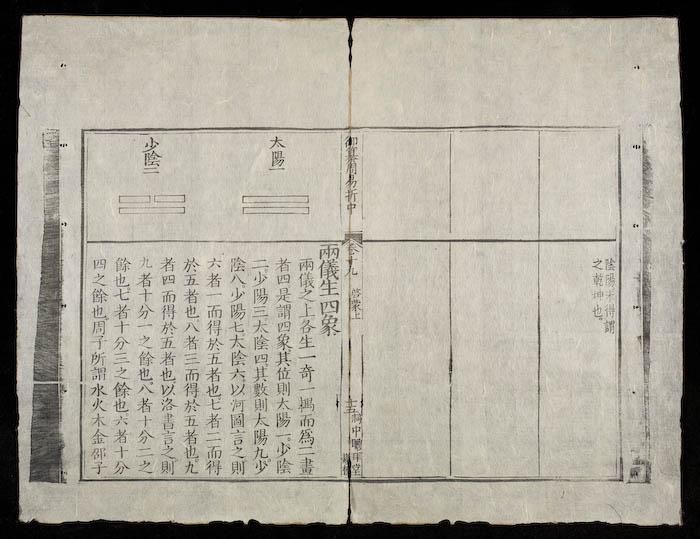 陰陽未得謂
之乾坤也
御纂周易折中
卷十九 啓蒙上
十五
太陽一
少陰二
兩儀生四象
兩儀之上各生一奇一耦而爲二畫
者四是謂四象其位則太陽一少陰
二少陽三太陰四其數則太陽九少
陰八少陽七太陰六以河圖言之則
六者一而得於五者也七者二而得
於五者也八者三而得於五者也九
者四而得於五者也以洛書言之則
九者十分一之餘也八者十分二之
餘也七者十分三之餘也六者十分
四之餘也周子所謂水火木金邵子